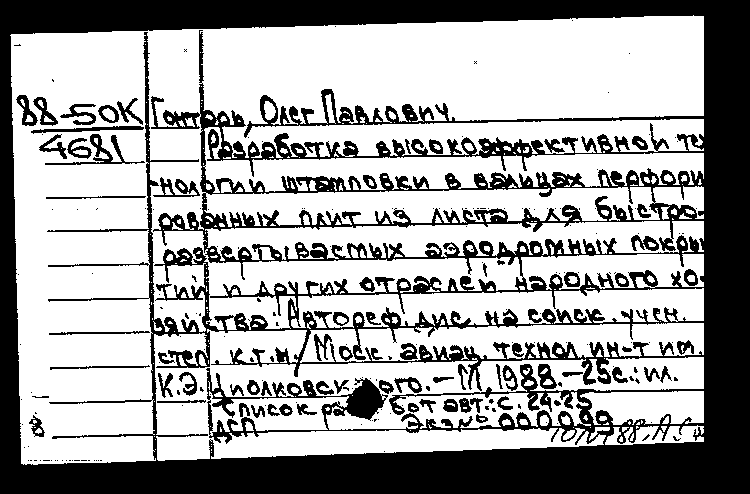 88-50К Гонтарь, Олег Павлович.
4681 Разработка высокоэффективной тех
-нологии штамповки в вальцах перфори
рованных плит из листа для быстро-
развертываемых аэродромных покры
тий и других отраслей народного хо-
зяйства: Автореф. дис. на соиск. учен.
степ. к.т.н./ Моск. авиац. технол. ин-т им.
К.Э. Циолковск ого. - М, 1988. - 25с.: ил.
Список ра бот авт.: с. 24-25
ДСП Экз № 000099